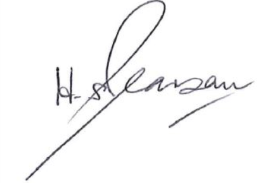 H. S. Pearson